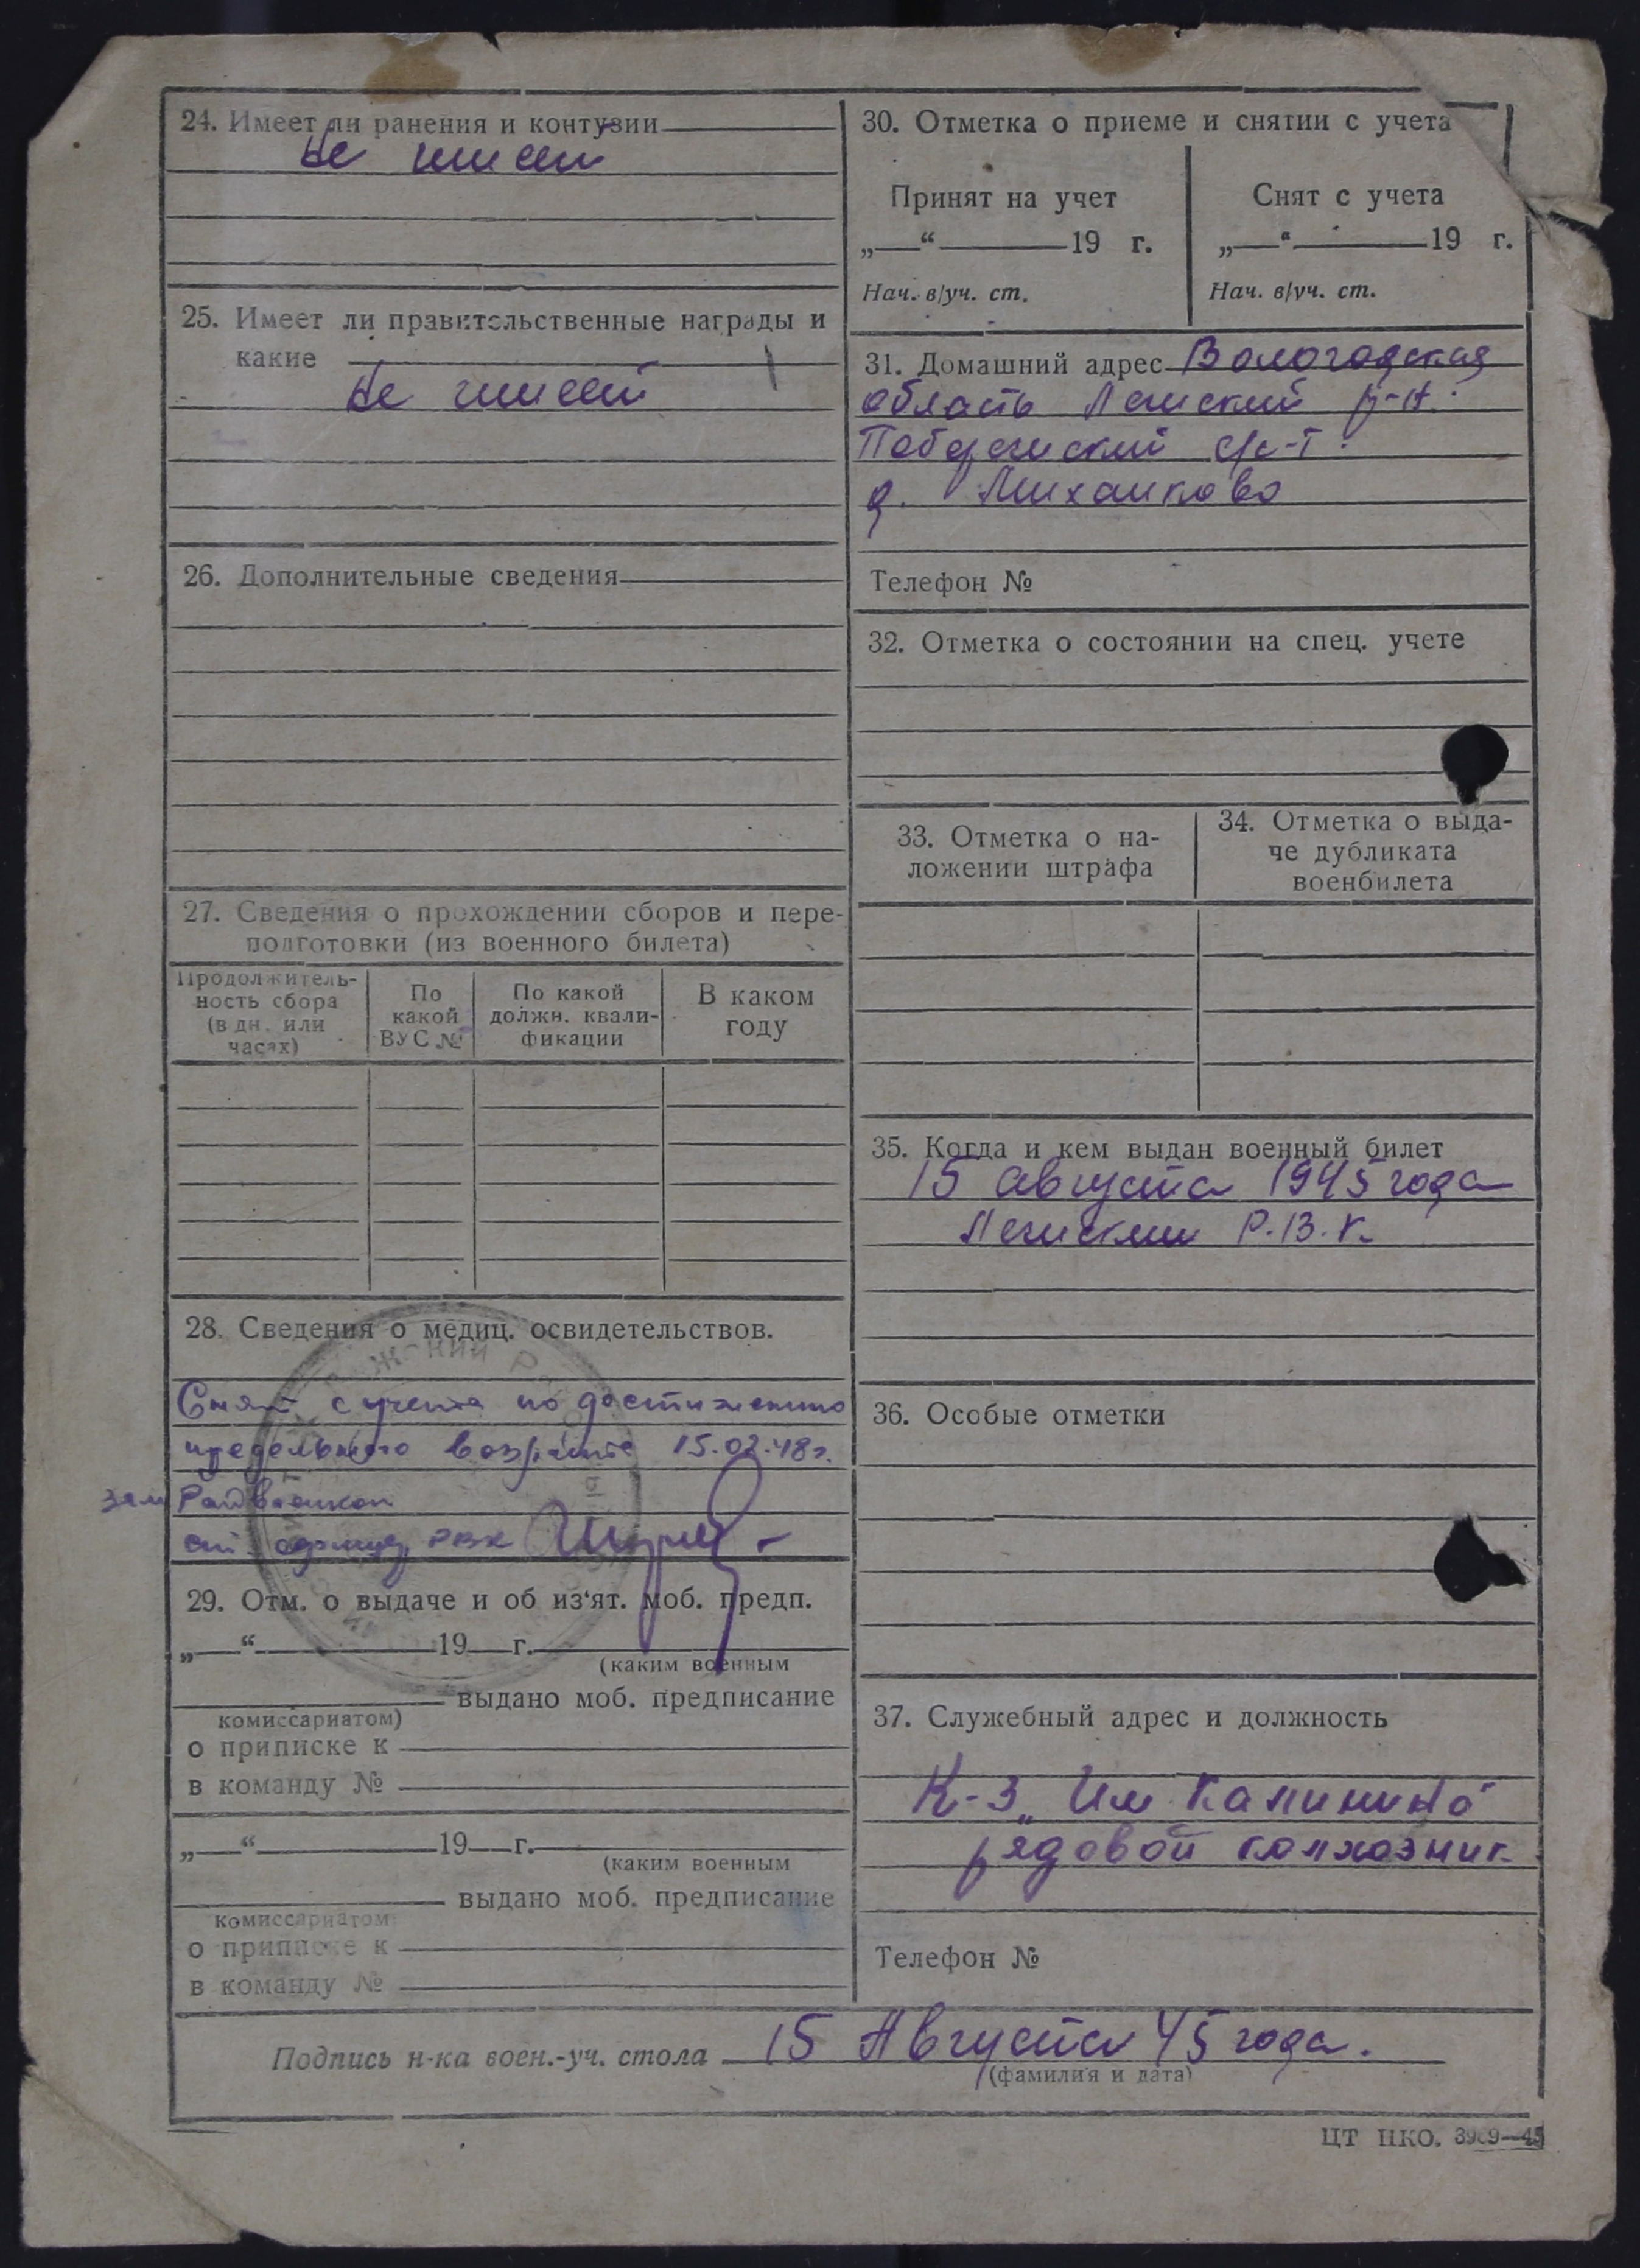 24. Имеет ли ранения и контузии
Не имеет
25. Имеет ли правительственные награды и
какие
Не имеет
26. Дополнительные сведения
27. Сведения о прохождении сборов и пере-
подготовки (из военного билета)
Продолжитель-
ность сбора
(в дн. или
часах)
По
какой
ВУС №
По какой
должн. квали-
фикации
В каком
году
28. Сведения о медиц. освидетельствов.
Снят с учета по достижению
предельного возраста 15.02.48г.
зам Райвоенком
ст. офицер РВК
29. Отм. о выдаче и об из‘ят. моб. предп.
„ “ 19 г.
(каким военным
выдано моб. предписание
комиссариатом)
о приписке к
в команду №
„ “ 19 г.
(каким военным
выдано моб. предписание
комиссариатом)
о приписке к
в команду №
30. Отметка о приеме и снятии с учета
Принят на учет
„ “ 19 г.
Нач. в/уч. ст.
Снят с учета
„ “ 19 г.
Нач. в/уч. ст.
31. Домашний адрес Вологодская
область Лежский р-н.
с/с-т.
д. Михалково
Телефон №
32. Отметка о состоянии на спец. учете
33. Отметка о на-
ложении штрафа
34. Отметка о выда-
че дубликата
военбилета
35. Когда и кем выдан военный билет
15 августа 1945 года
Лежским Р.В.К.
36. Особые отметки
37. Служебный адрес и должность
К-з „Им Калинина“
рядовой колхозник.
Телефон №
Подпись н-ка воен.-уч. стола 15 Августа 45 года.
(фамилия и дата)
ЦТ НКО. 3909—45